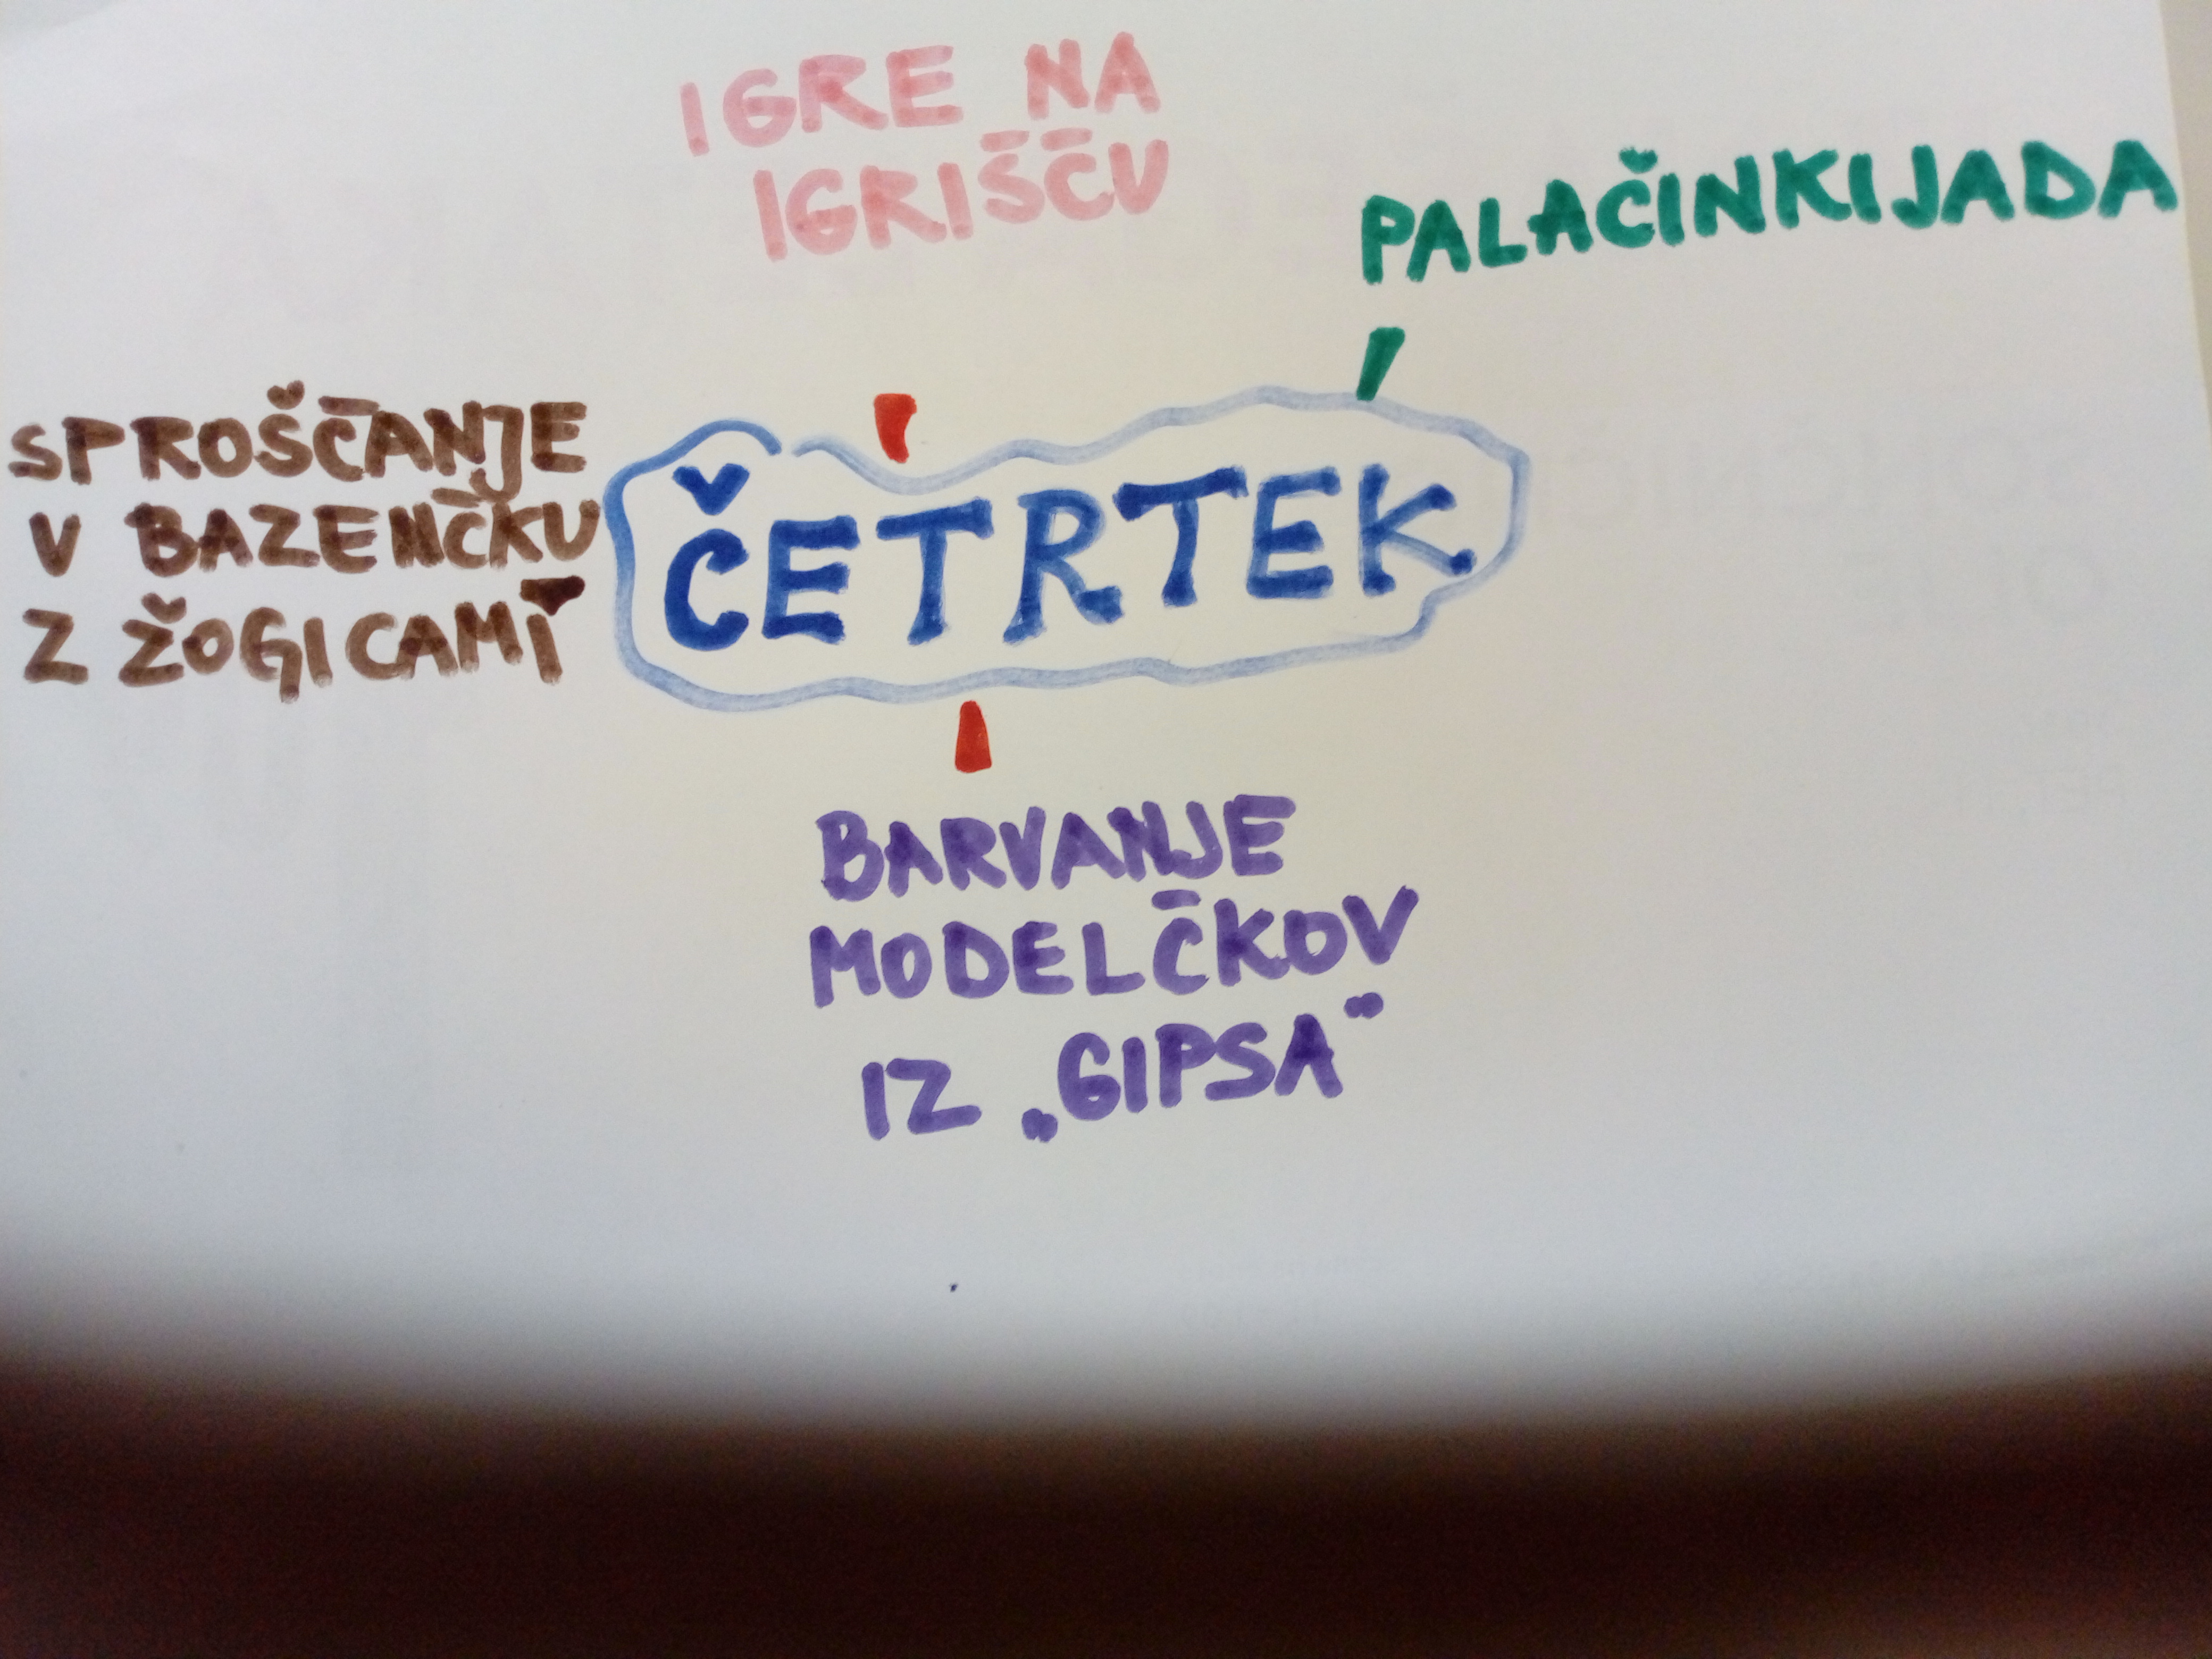 IGRE NA
IGRIŠČU
PALAČINKIJADA
SPROŠČANJE
V BAZENČKU
Z ŽOGICAMI
ČETRTEK
BARVANJE
MODELČKOV
IZ „GIPSA"